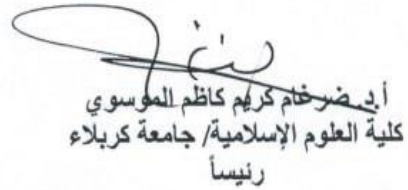 أ.د. ضرغام كريم كاظم الموسوي
كلية العلوم الإسلامية/ جامعة كربلاء
رئيساً